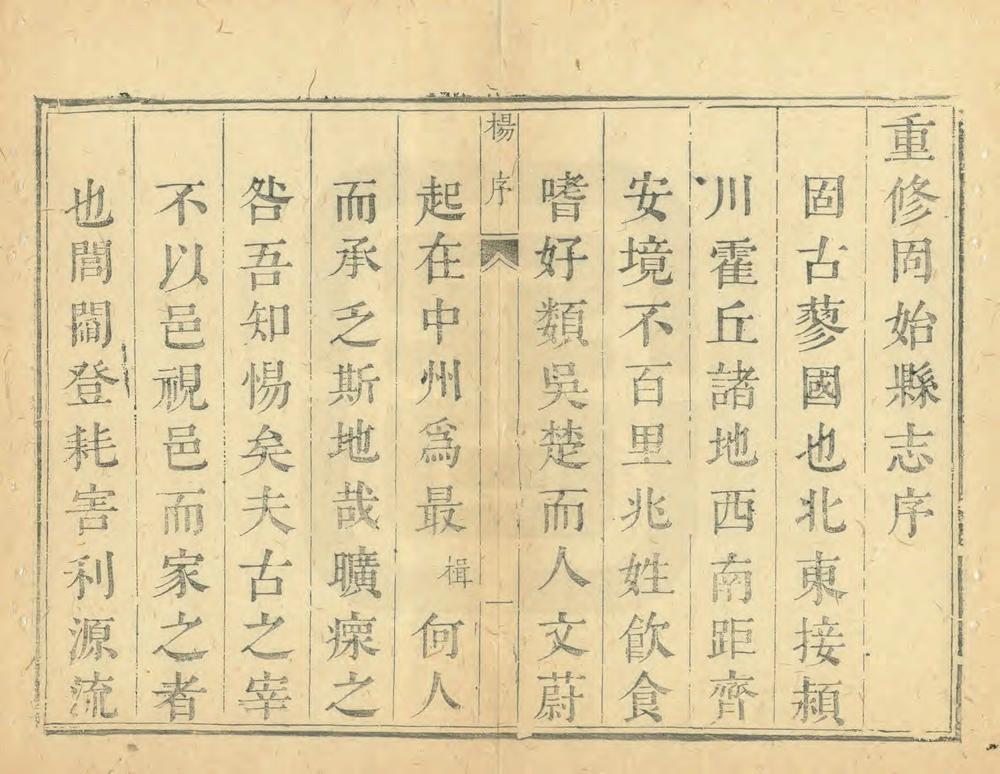 重修固始縣志序
固古蓼國也北東接頴
川霍丘諸地西南距齊
安境不百里兆姓飲食
嗜好類吳楚而人文蔚
楊序
一
起在中州爲最楫何人
而承乏斯地哉曠瘝之
咎吾知惕矣夫古之宰
不以邑視邑而家之者
也閭閻登耗害利源流